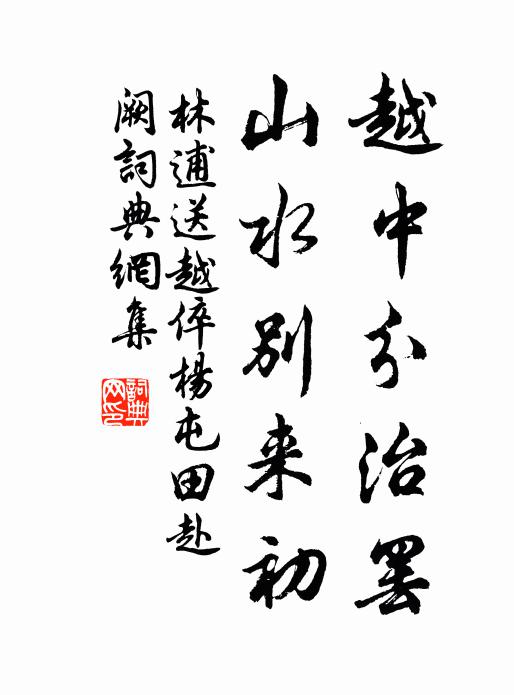 越中分治罢
山水别来初
林逋送越倅楊屯田赴
阙詞典網集
詞典
网印